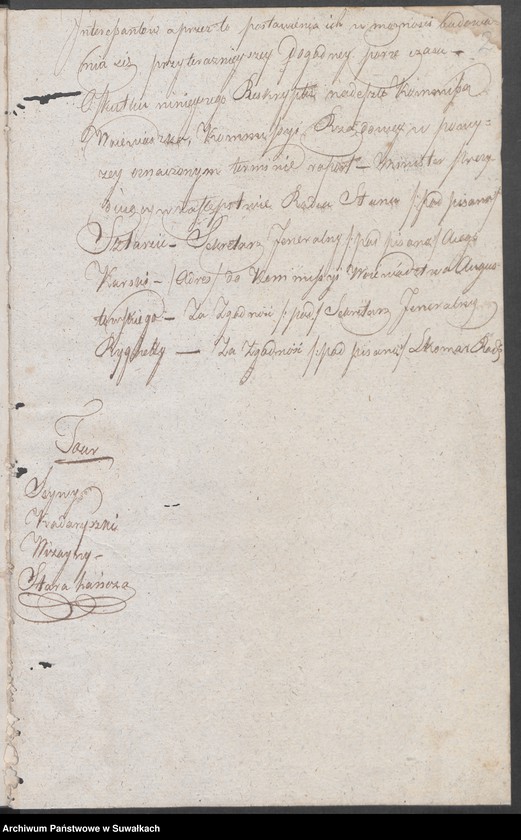 Interesantów a przez to postawienia ich w możności budowa
nia się przy teraznieyszey dogodney porze czasu –
O skutku ninieyszego Reskryptu nadeszle Kommissya
Woiewodzka, Kommissyi Rządowey w powy
zey oznaczonym terminie raport – Minister Prezy
duiący w zastępstwie Radca Stanu /:podpisano:/
Sztanie – Sekretarz Jeneralny /:podpisano:/ Aug
Karski – /Adres/ do Kommissyi Woiewodztwa Augus
towskiego – Za Zgodność /:podp:/ Sekretarz Jeneralny
– Za Zgodność /:podpisano:/
2
Tour
Seyny
Wiżayny –
Stara hańcza
Archiwum Państwowe w Suwałkach